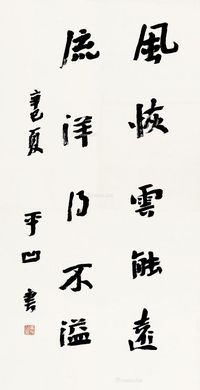 風恢雲能遠
流洋乃不溢
辛巳夏 平凹書